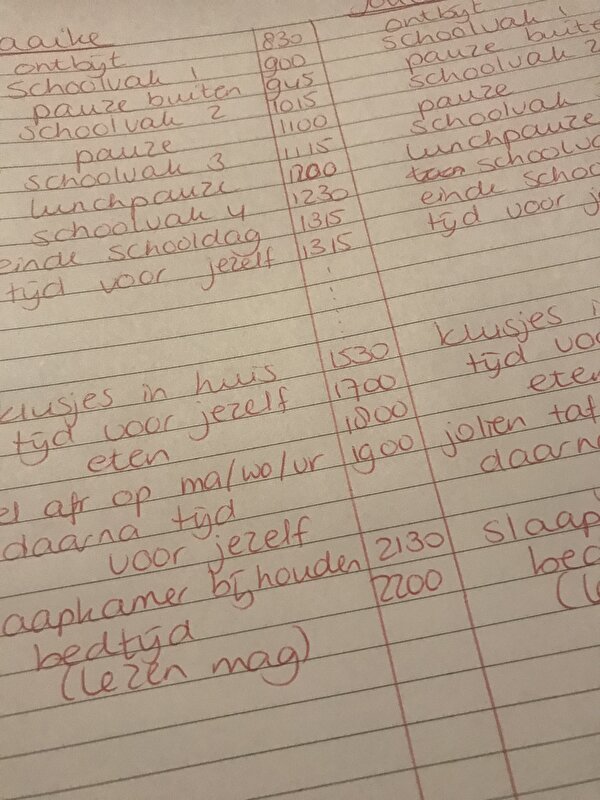 aaike
ontbyt 830 ontbyt
schoolvak 1 900 schoolvak 1
pauze buiten 945 pauze buiten
schoolvak 2 1015 schoolvak 2
pauze 1100 pauze
schoolvak 3 1115 schoolvak
lunchpauze 1200 lunchpauze
schoolvak 4 1230 schoolva
einde schooldag 1315 einde schoo
tijd voor jezelf 1315 tijd voor je
klusjes in huis 1530 klusjes i
tijd voor jezelf 1700 tijd voo
eten 1800 eten
afr op ma/wo/vr 1900 jolien taf
daarna tijd daarna
voor jezelf
aapkamer bijhouden 2130 slaap
bedtijd 2200 bed
(lezen mag) (le